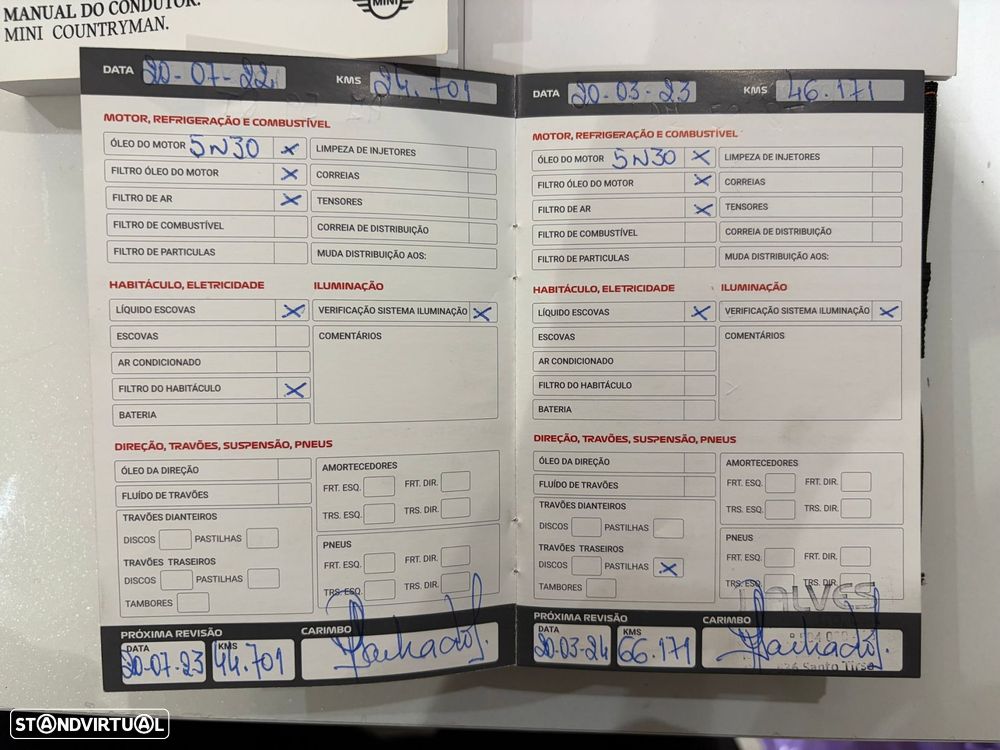 MANUAL DO CONDUTOR.
MINI COUNTRYMAN.
MINI
DATA 20-07-22 KMS 24.701
MOTOR, REFRIGERAÇÃO E COMBUSTÍVEL
ÓLEO DO MOTOR 5W30 X LIMPEZA DE INJETORES
FILTRO ÓLEO DO MOTOR X CORREIAS
FILTRO DE AR X TENSORES
FILTRO DE COMBUSTÍVEL CORREIA DE DISTRIBUIÇÃO
FILTRO DE PARTICULAS MUDA DISTRIBUIÇÃO AOS:
HABITÁCULO, ELETRICIDADE ILUMINAÇÃO
LÍQUIDO ESCOVAS X VERIFICAÇÃO SISTEMA ILUMINAÇÃO X
ESCOVAS COMENTÁRIOS
AR CONDICIONADO
FILTRO DO HABITÁCULO X
BATERIA
DIREÇÃO, TRAVÕES, SUSPENSÃO, PNEUS
ÓLEO DA DIREÇÃO AMORTECEDORES
FLUÍDO DE TRAVÕES FRT. ESQ. FRT. DIR.
TRAVÕES DIANTEIROS TRS. ESQ. TRS. DIR.
DISCOS PASTILHAS PNEUS
TRAVÕES TRASEIROS FRT. ESQ. FRT. DIR.
DISCOS PASTILHAS TRS. ESQ. TRS. DIR.
TAMBORES
PRÓXIMA REVISÃO CARIMBO
DATA 20-07-23 KMS 44.701 Machado
DATA 20-03-23 KMS 46.171
MOTOR, REFRIGERAÇÃO E COMBUSTÍVEL
ÓLEO DO MOTOR 5W30 X LIMPEZA DE INJETORES
FILTRO ÓLEO DO MOTOR X CORREIAS
FILTRO DE AR X TENSORES
FILTRO DE COMBUSTÍVEL CORREIA DE DISTRIBUIÇÃO
FILTRO DE PARTICULAS MUDA DISTRIBUIÇÃO AOS:
HABITÁCULO, ELETRICIDADE ILUMINAÇÃO
LÍQUIDO ESCOVAS X VERIFICAÇÃO SISTEMA ILUMINAÇÃO X
ESCOVAS COMENTÁRIOS
AR CONDICIONADO
FILTRO DO HABITÁCULO
BATERIA
DIREÇÃO, TRAVÕES, SUSPENSÃO, PNEUS
ÓLEO DA DIREÇÃO AMORTECEDORES
FLUÍDO DE TRAVÕES FRT. ESQ. FRT. DIR.
TRAVÕES DIANTEIROS TRS. ESQ. TRS. DIR.
DISCOS PASTILHAS PNEUS
TRAVÕES TRASEIROS FRT. ESQ. FRT. DIR.
DISCOS PASTILHAS X TRS. ESQ. TRS. DIR.
TAMBORES ALVES
PRÓXIMA REVISÃO CARIMBO
DATA 20-03-24 KMS 66.171 Machado
Santo Tirso
STANDVIRTUAL